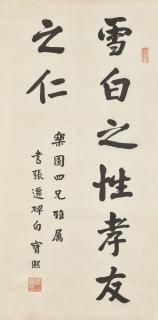 雪白之性孝友
之仁
樂園四兄雅屬
書張遷碑句 寶熙